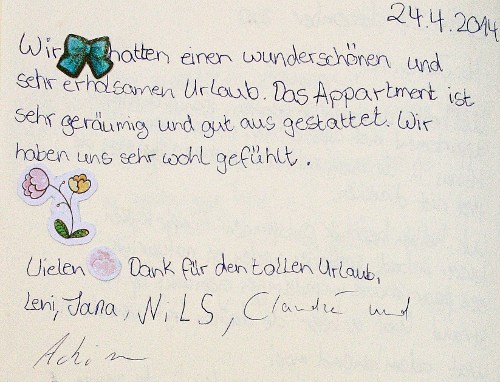 24.4.2014
Wir hatten einen wunderschönen und
sehr erholsamen Urlaub. Das Appartment ist
sehr geräumig und gut aus gestattet. Wir
haben uns sehr wohl gefühlt.
Vielen Dank für den tollen Urlaub,
Leni, Jana, NiLS, Claudia und
Achim